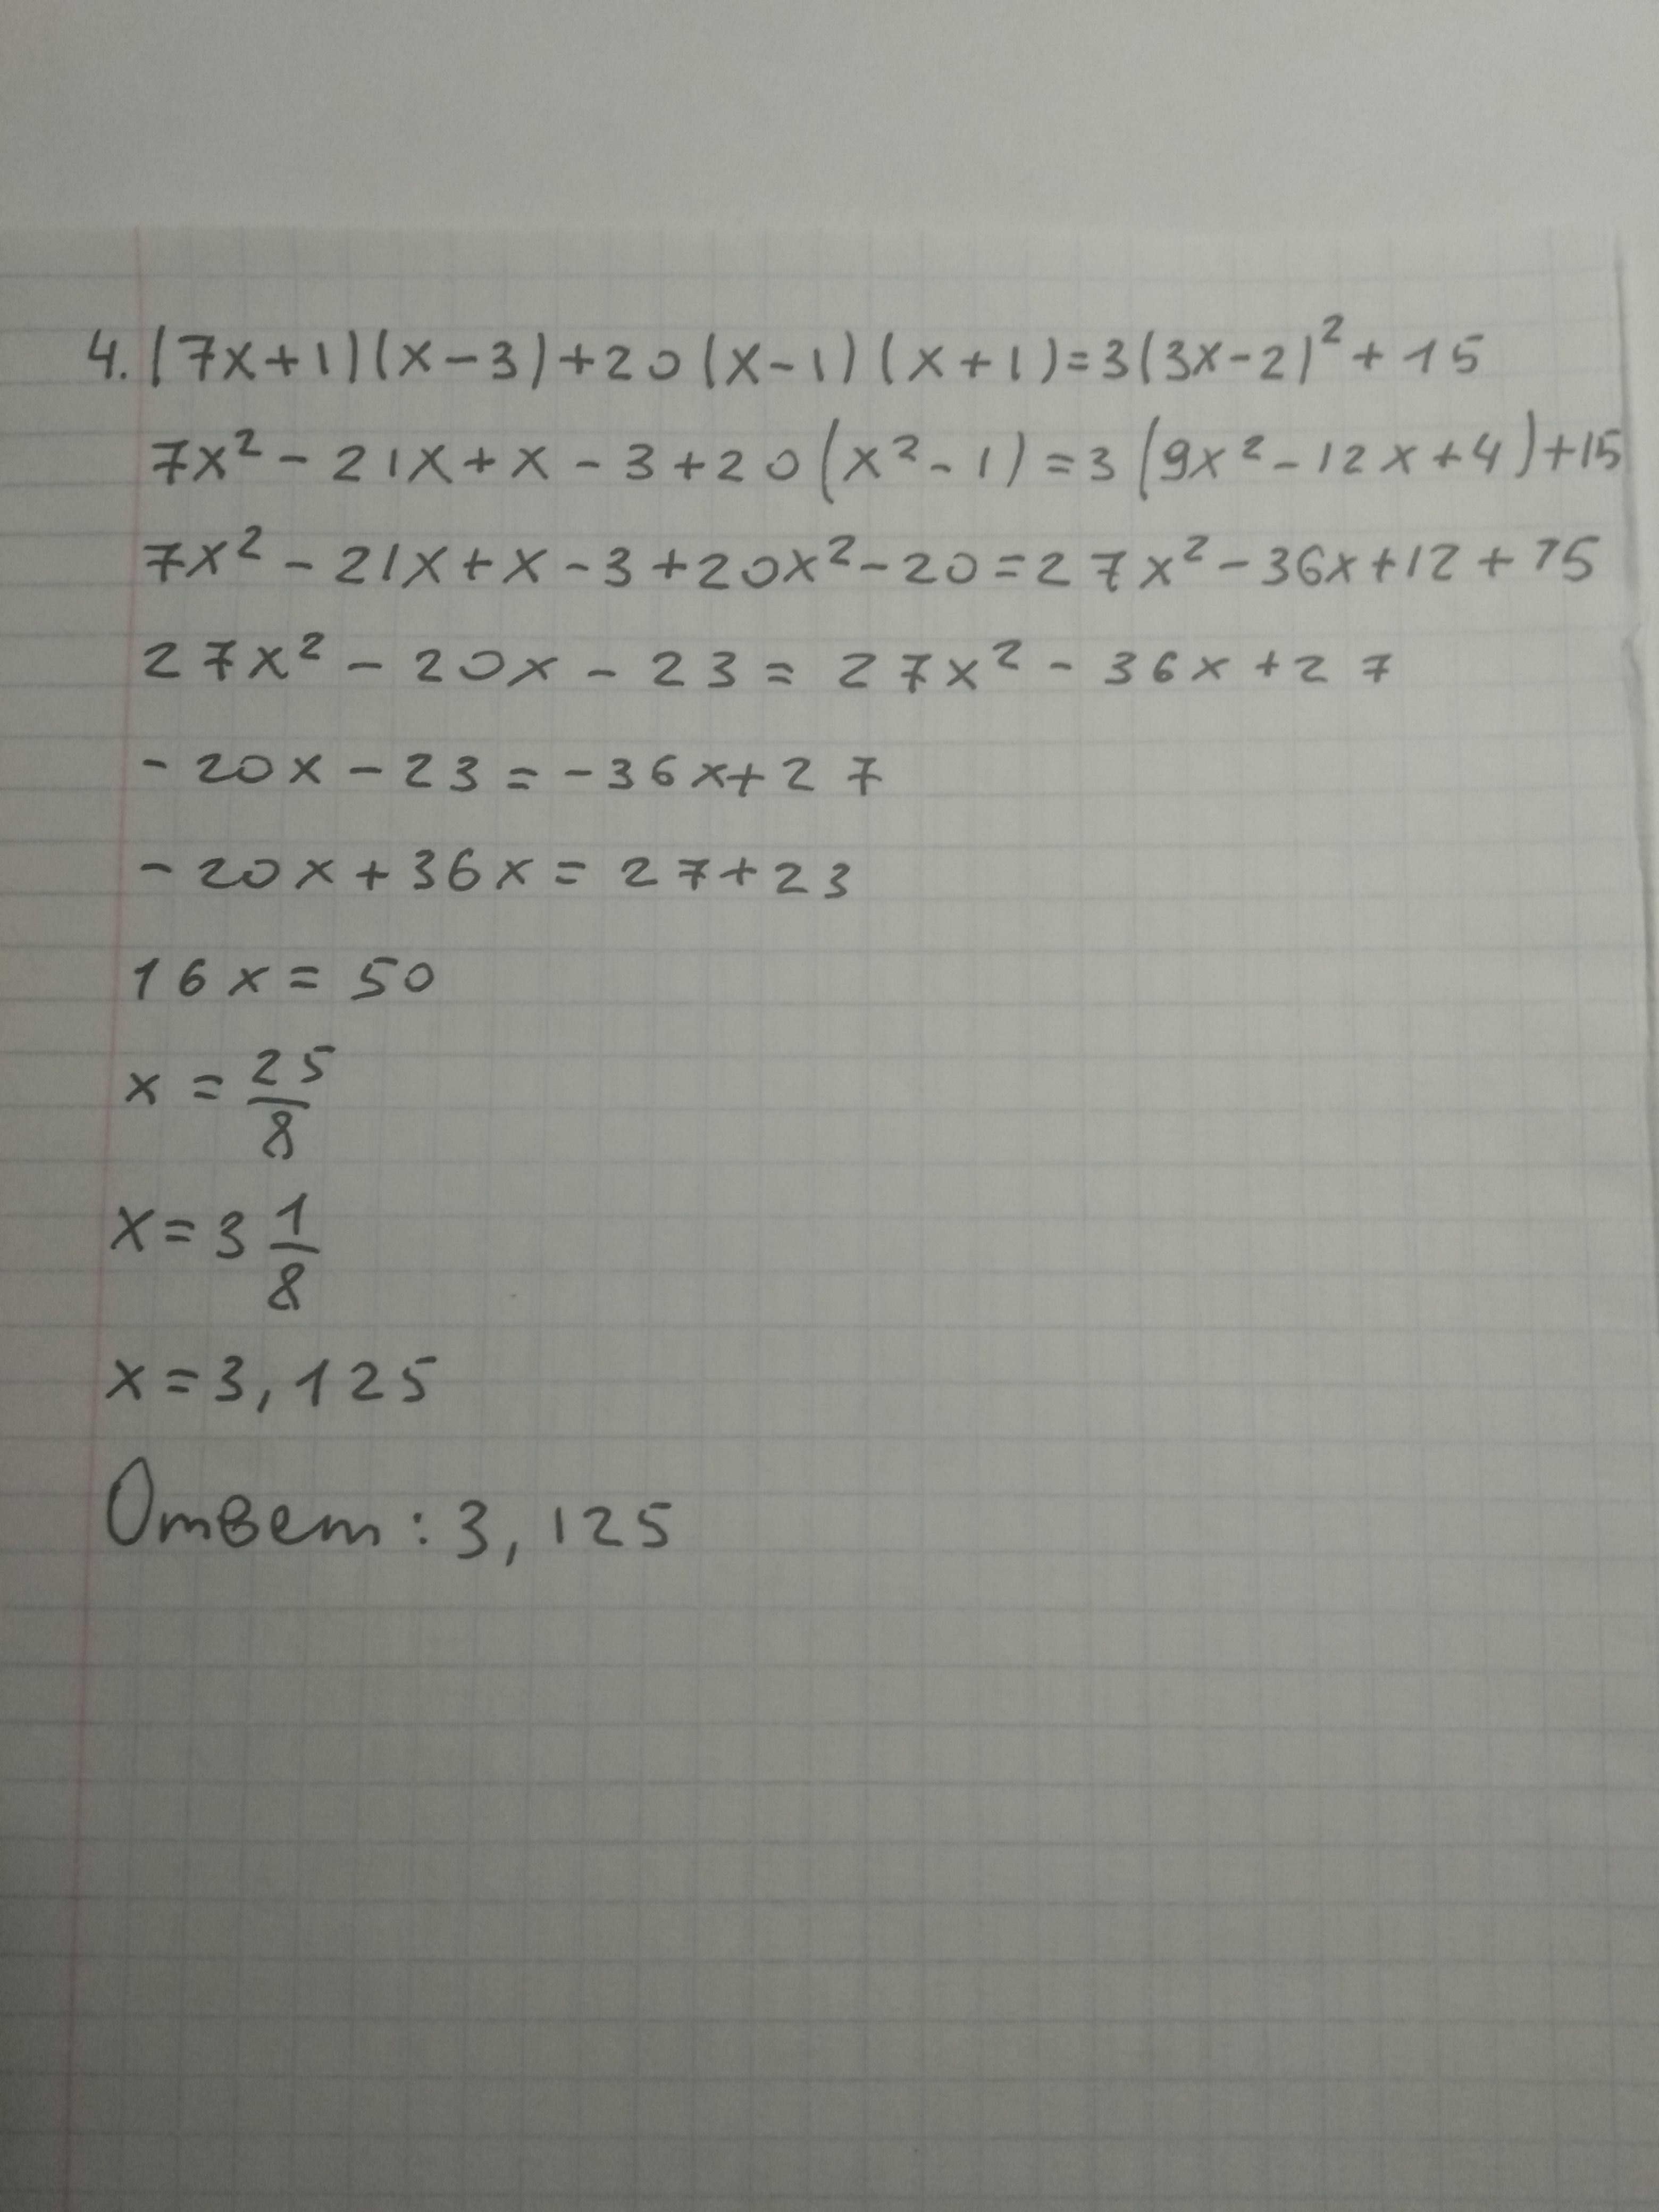 4. (7x+1)(x-3)+20(x-1)(x+1)=3(3x-2)²+15
7x²-21x+x-3+20(x²-1)=3(9x²-12x+4)+15
7x²-21x+x-3+20x²-20=27x²-36x+12+15
27x²-20x-23=27x²-36x+27
-20x-23=-36x+27
-20x+36x=27+23
16x=50
x=25/8
x=3 1/8
x=3,125
Ответ: 3,125